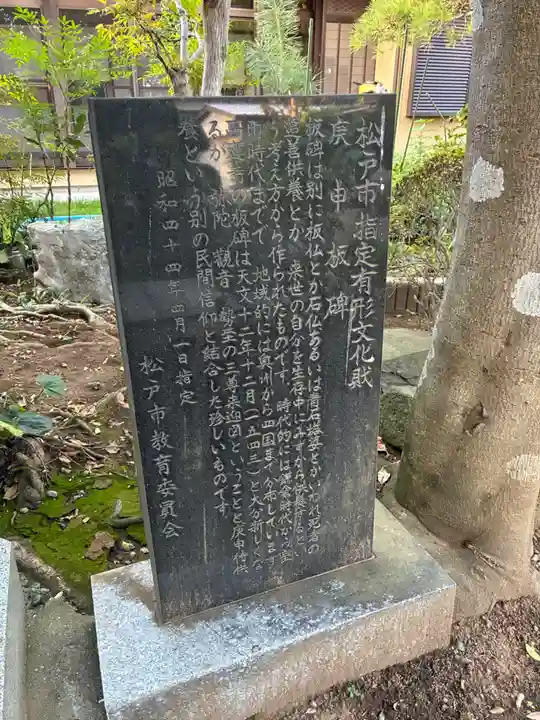 松戸市指定有形文化財
庚申板碑
板碑は別に板仏とか石仏あるいは青石塔婆とかいわれ死者の
追善供養とか 来世の自分を生存中にみずから供養するとい
考え方から作られたものです。時代的には鎌倉時代から室
町時代までで 地域的には奥州から四国まで分布しています
の板碑は天文十二年十二月(一五四三)と大分新しくな
るが 弥陀 観音 勢至の三尊来迎図ということと庚申待供
養という別の民間信仰と結合した珍しいものです。
昭和四十四年四月一日指定
松戸市教育委員会